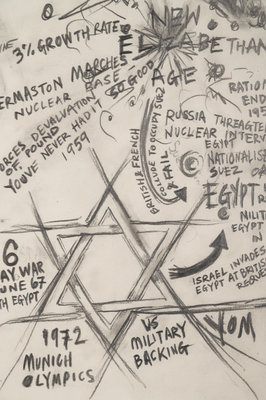 NEW
ELIZABETHAN
AGE
3% GROWTH RATE
MARCHES
EASE
SO GOOD
ERMASTON
NUCLEAR
FORCES DEVALUATION
OF POUND
YOU'VE NEVER HAD IT
1959
RATION
END
195
BRITISH & FRENCH
COLLUDE TO OCCUPY SUEZ
& FAIL
RUSSIA
NUCLEAR
THREATEN
INTERV
EGYPT
NATIONALISE
SUEZ
EGYPT
MILIT
EGYPT
IN
ISRAEL INVADES
EGYPT AT BRITISH
REQUE
6
AY WAR
UNE 67
TH EGYPT
1972
MUNICH
OLYMPICS
VS
MILITARY
BACKING
YOM